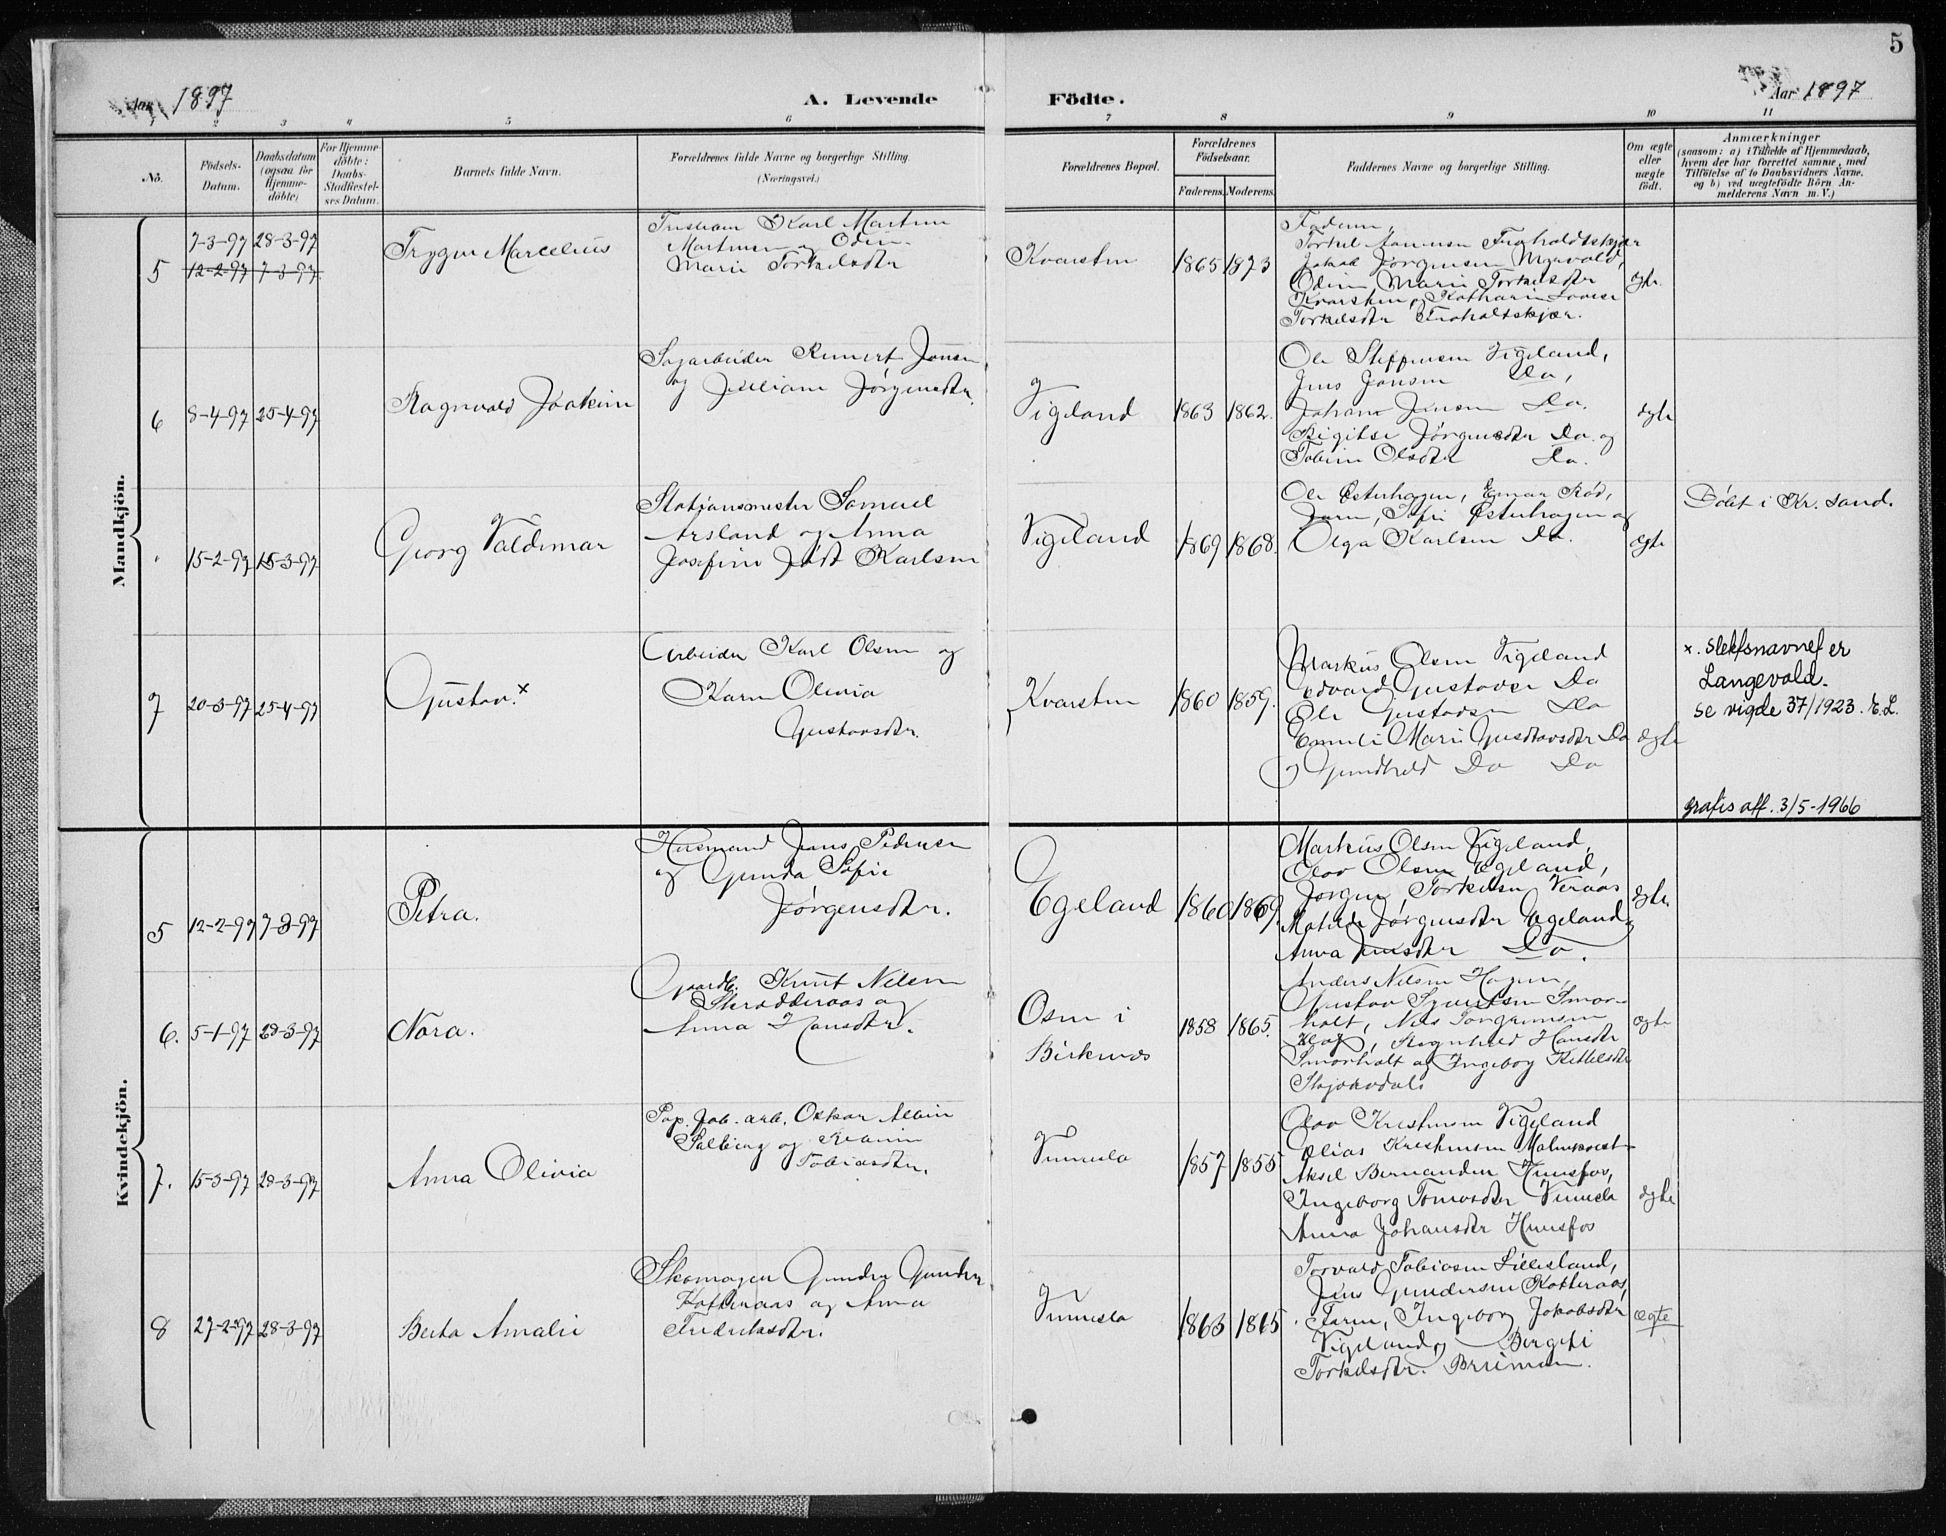 Aar 1897
A. Levende
Födte.
Aar 1897
5
1 2 3 4 5 6 7 8 9 10 11
No.
Födsels-Datum.
Daabsdatum (ogsaa for Hjemme-döbte)
For Hjemme-döbte: Daabs-Stadfæstel-ses Datum.
Barnets fulde Navn.
Forældrenes fulde Navne og borgerlige Stilling.
(Næringsvei.)
Forældrenes Bopæl.
Forældrenes Födselsaar.
Faderens. Moderens.
Faddernes Navne og borgerlige Stilling.
Om ægte eller uægte födt.
Anmærkninger
(saasom: a) i Tilfælde af Hjemmedaab,
hvem der har forrettet samme, med
Tilföielse af to Daabsvidners Navne,
og b) ved uægtefödte Börn An-
melderens Navn m. V.)
Mandkjön.
5
7-3-97 28-3-97
12-2-97 7-3-97
Trygve Marcelius
Karl Martin
Marie Torkelsdtr
1865 1873
Faderen,
Torkel
Jakob Jørgensen
Marie Torkelsdtr
Torkelsdtr
ægte.
6
8-4-97 25-4-97
Ragnvald Joakim
Sagarbeider Jensen
og Juliane Jørgensdtr.
Vigeland
1863 1862.
Ole Steffensen Vigeland,
Jens Jensen Do,
Jensen Do.
Jørgensdtr Do. og
Olsdtr Do.
ægte
15-2-97 15-3-97
Georg Valdemar
Stationsmester Samuel
Arsland og Anna
Josefine født Karlsen
Vigeland
1869 1868.
Ole Østerhagen,
Farm, Sofie Østerhagen og
Olga Karlsen Do.
ægte
Døbt i Kr. sand.
7
20-3-97 25-4-97
Gustav. x
Arbeider Karl Olsen og
Karen Olivia
Gustavsdtr.
1860 1859.
Markus Olsen Vigeland
Edvard Gustavsen Do
Ole Gustavsen Do
Marie Gustavsdtr Do
og Gundhild Do Do
ægte
x. slektsnavnet er
Langevold.
se vigde 37/1923. E.L.
gratis att. 3/5-1966
Kvindekjön.
5
12-2-97 7-3-97
Petra.
Husmand Jens Pedersen
og Gunda Sofie
Jørgensdtr.
Egeland
1860 1869.
Markus Olsen Vigeland,
Olav Olsen Egeland,
Jørgen Torkelsen Veraas
Matilde Jørgensdtr Egeland og
Anna Jensdtr Do.
ægte
6.
5-1-97 28-3-97
Nora.
Gaardb. Knut Nilsen
og
Anna Hansdtr.
Osen i
Birkenes
1858 1865.
Anders Nilsen Hagen,
Gustav
holt, Nils
Hansdtr
og Ingeborg
ægte
7.
15-3-97 28-3-97
Anna Olivia
Pap. fab. arb. Oskar Albin
og
Tobiasdtr.
Vennesla
1857 1855
Olav Kristensen Vigeland
Elias Kristensen
Aksel Hunsfos,
Ingeborg Tomasdtr Vennesla
Anna Johansdtr Hunsfos
ægte
8
27-2-97 28-3-97
Berta Amalie
Skomager Gunder
og Anna
Fredriksdtr.
Vennesla
1863 1865
Torvald Tobiasen Lillesland,
Jens Gundersen
Farm, Ingeborg Jakobsdtr
Vigeland og
Torkelsdtr.
ægte